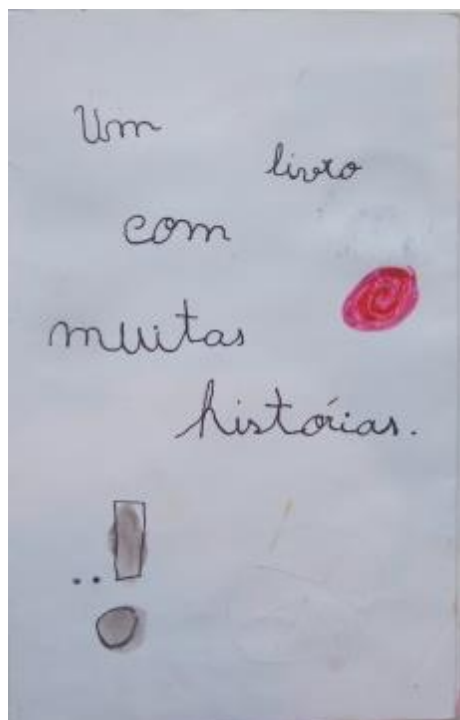 Um
livro
com
muitas
histórias.
..!